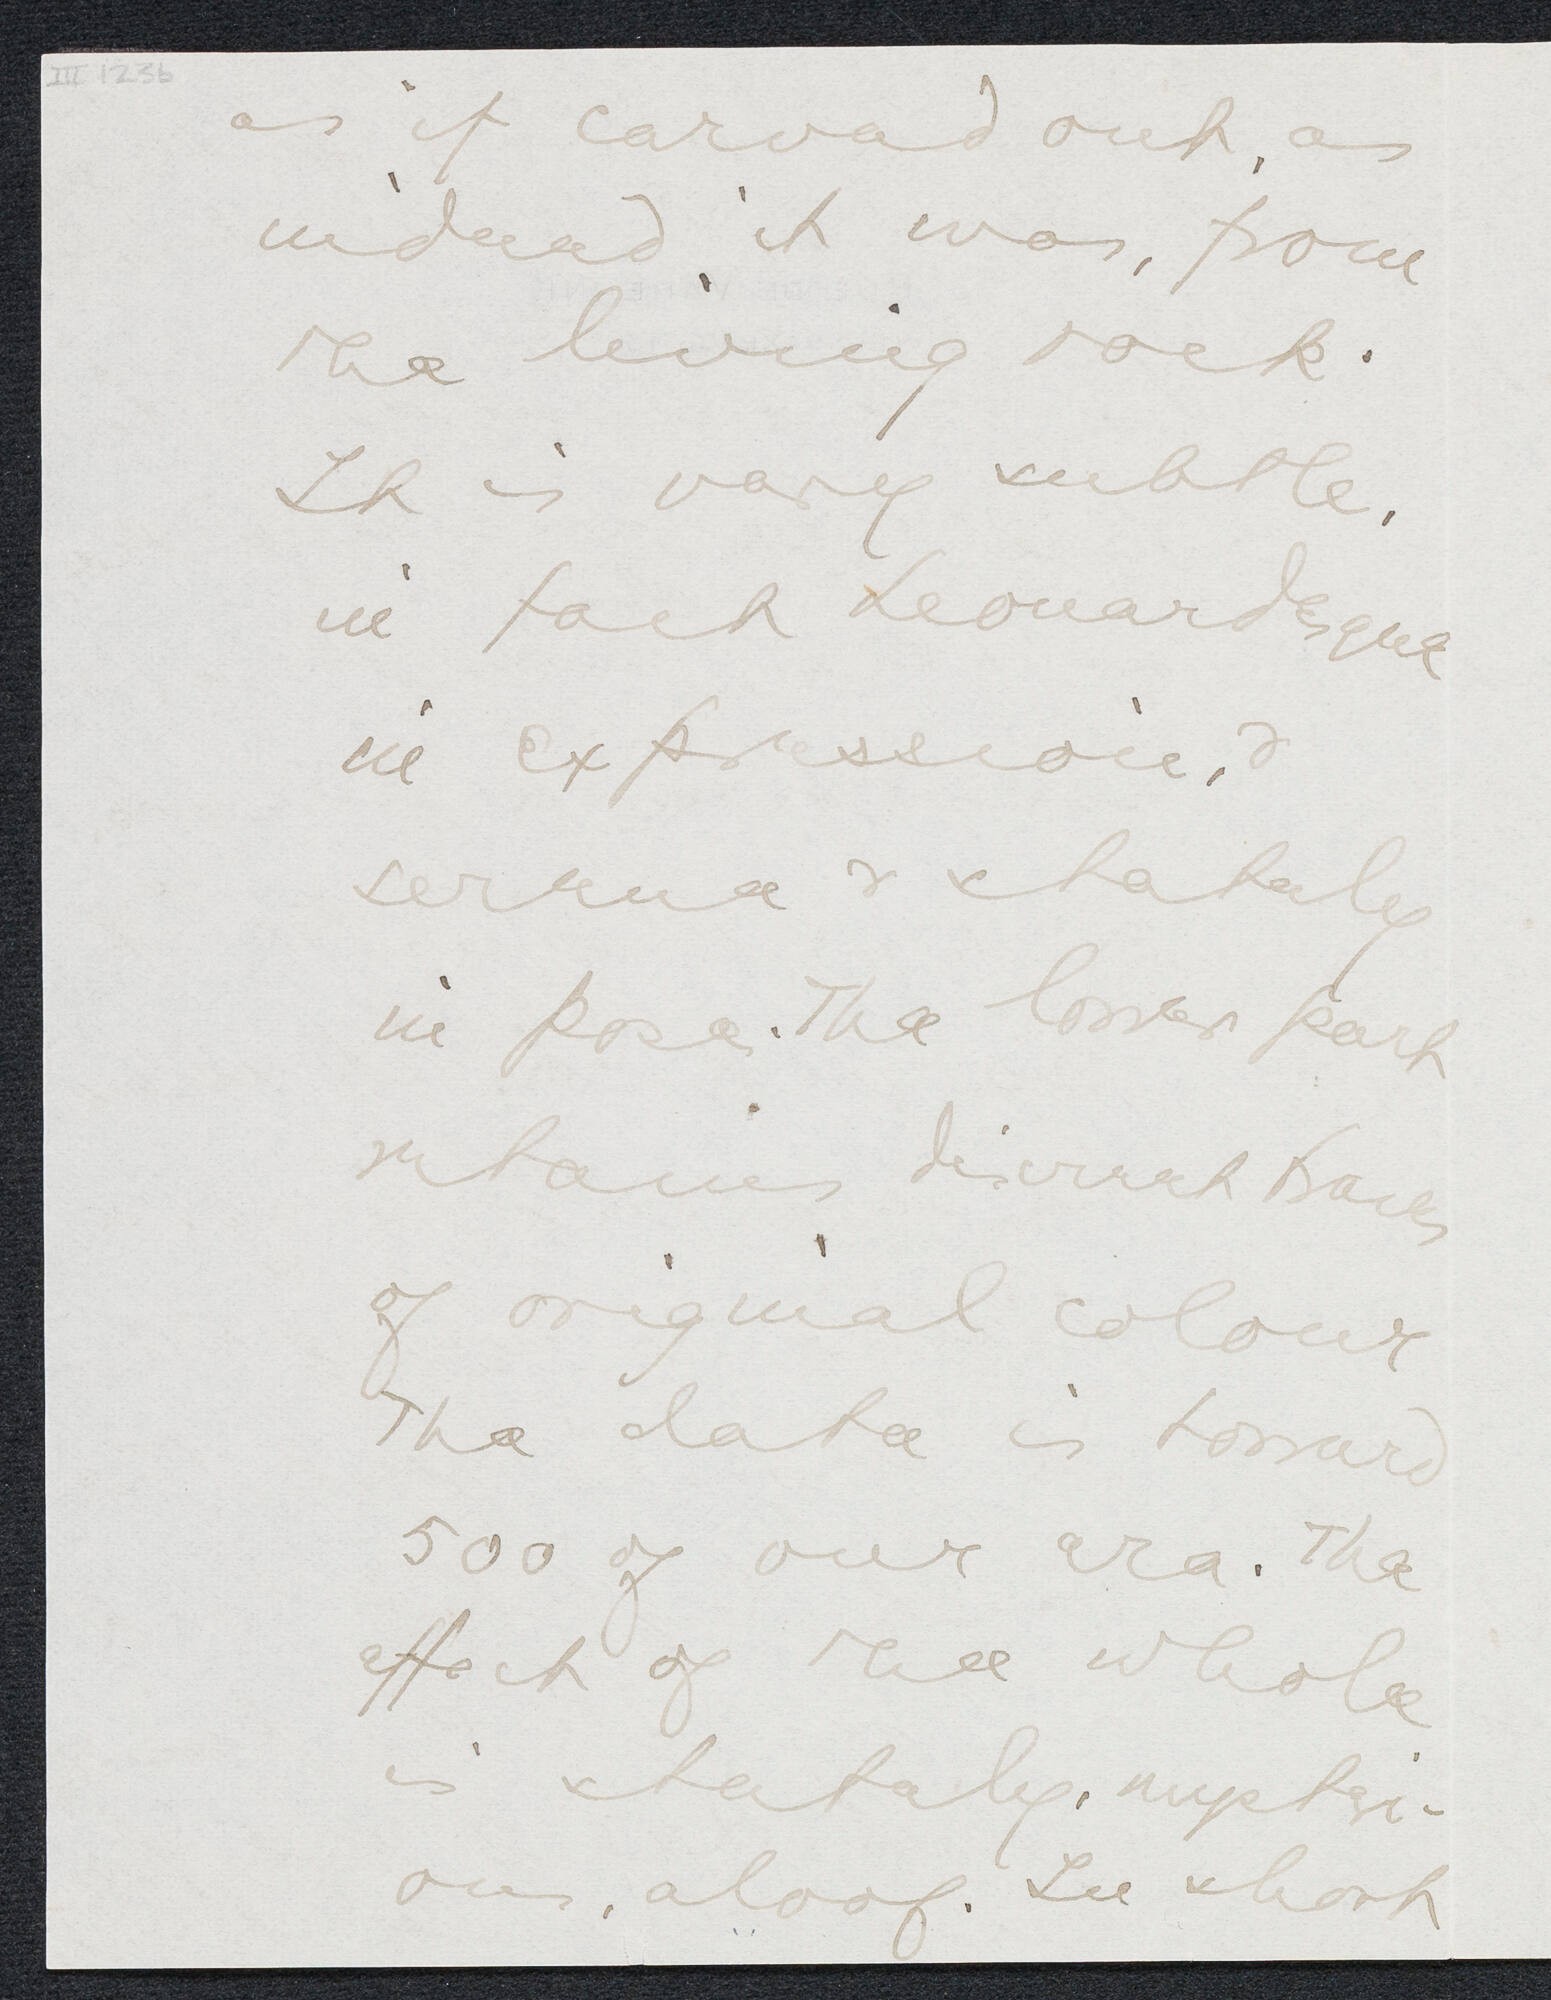 III 1236
as if carved out, as
indeed it was, from
the living rock.
It is very subtle,
in fact Leonardesque
in expression, &
serene & stately
in pose. The lower part
retains discreet traces
of original colour
The date is toward
500 of our era. The
effect of the whole
is stately, mysteri-
ous, aloof. In short